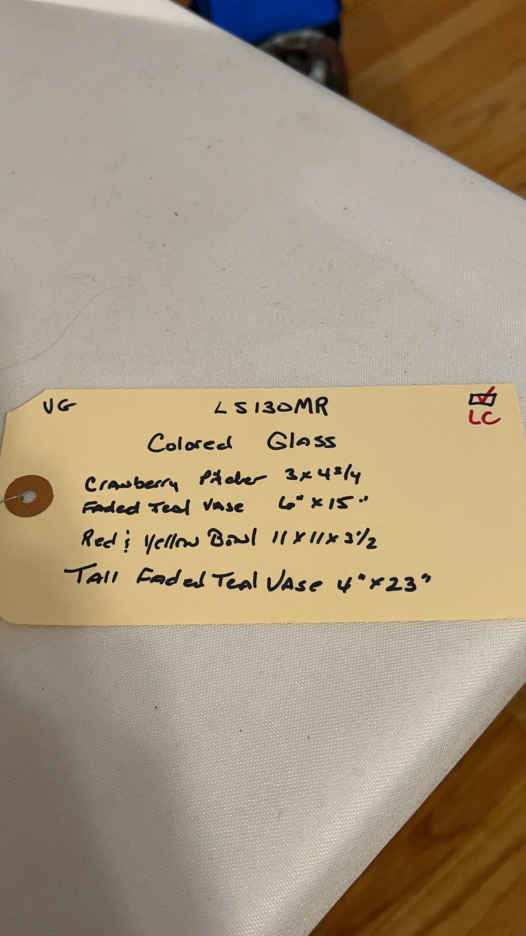 VG LS130MR
LC
Colored Glass
Cranberry Pitcher 3 x 4 3/4
Faded Teal Vase 6" x 15"
Red & Yellow Bowl 11 x 11 x 3 1/2
Tall Faded Teal Vase 4" x 23"